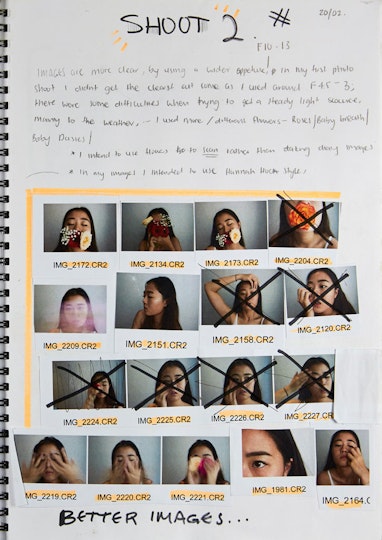 SHOOT 2 #
20/02
F10-13
IMAGES are more clear, by using a wider
in my first photo
shoot I didnt get the clearest out come as I used around F4.5-3,
there were some difficulties when trying to get a steady light source,
to the weather, - I used more / different flowers - Roses/Baby breath/
Baby Dasies/
* I intend to use to scan rather than darking doing images
* In my images I intended to use Hannah Hoch style.
IMG_2172.CR2 IMG_2134.CR2 IMG_2173.CR2 IMG_2204.CR2
IMG_2209.CR2 IMG_2151.CR2 IMG_2158.CR2 IMG_2120.CR2
IMG_2224.CR2 IMG_2225.CR2 IMG_2226.CR2 IMG_2227.CR
MG_2219.CR2 IMG_2220.CR2 IMG_2221.CR2 IMG_1981.CR2 IMG_2164.C
BETTER IMAGES...